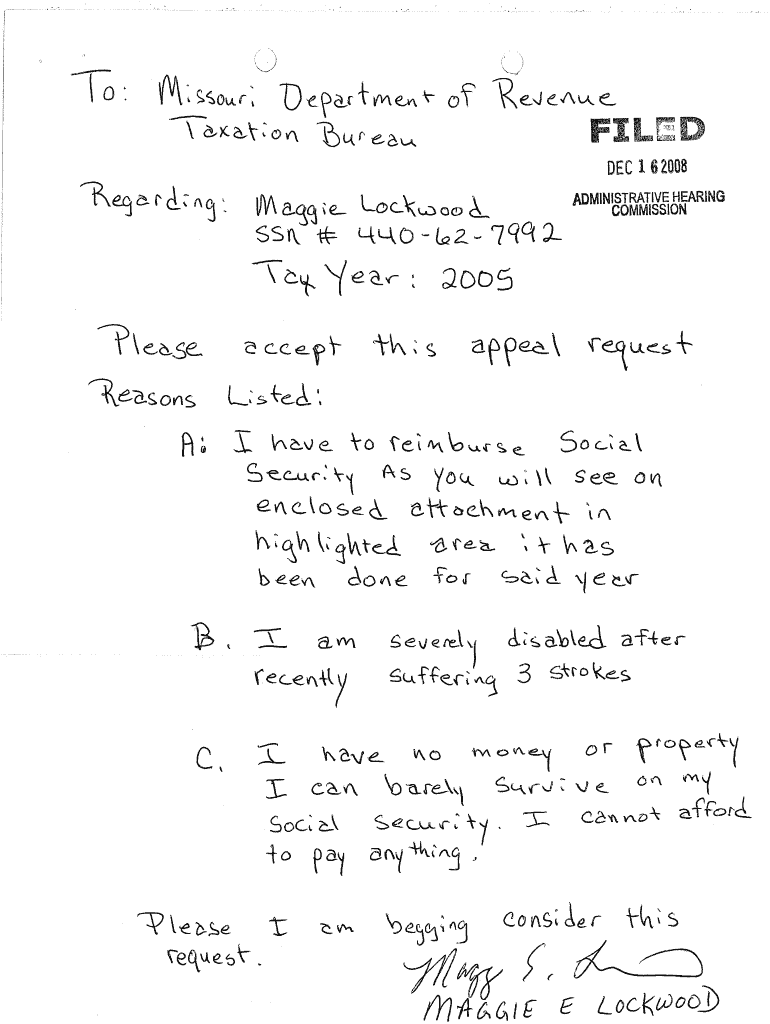 To: Missouri Department of Revenue
Taxation Bureau
FILED
DEC 16 2008
ADMINISTRATIVE HEARING
COMMISSION
Regarding: Maggie Lockwood
SSN # 440-62-7992
Tax Year: 2005
Please accept this appeal request
Reasons Listed:
A: I have to reimburse Social
Security As you will see on
enclosed attachment in
highlighted area it has
been done for said year
B. I am severely disabled after
recently suffering 3 strokes
C. I have no money or property
I can barely survive on my
Social Security. I cannot afford
to pay anything.
Please I am begging consider this
request.
MAGGIE E LOCKWOOD